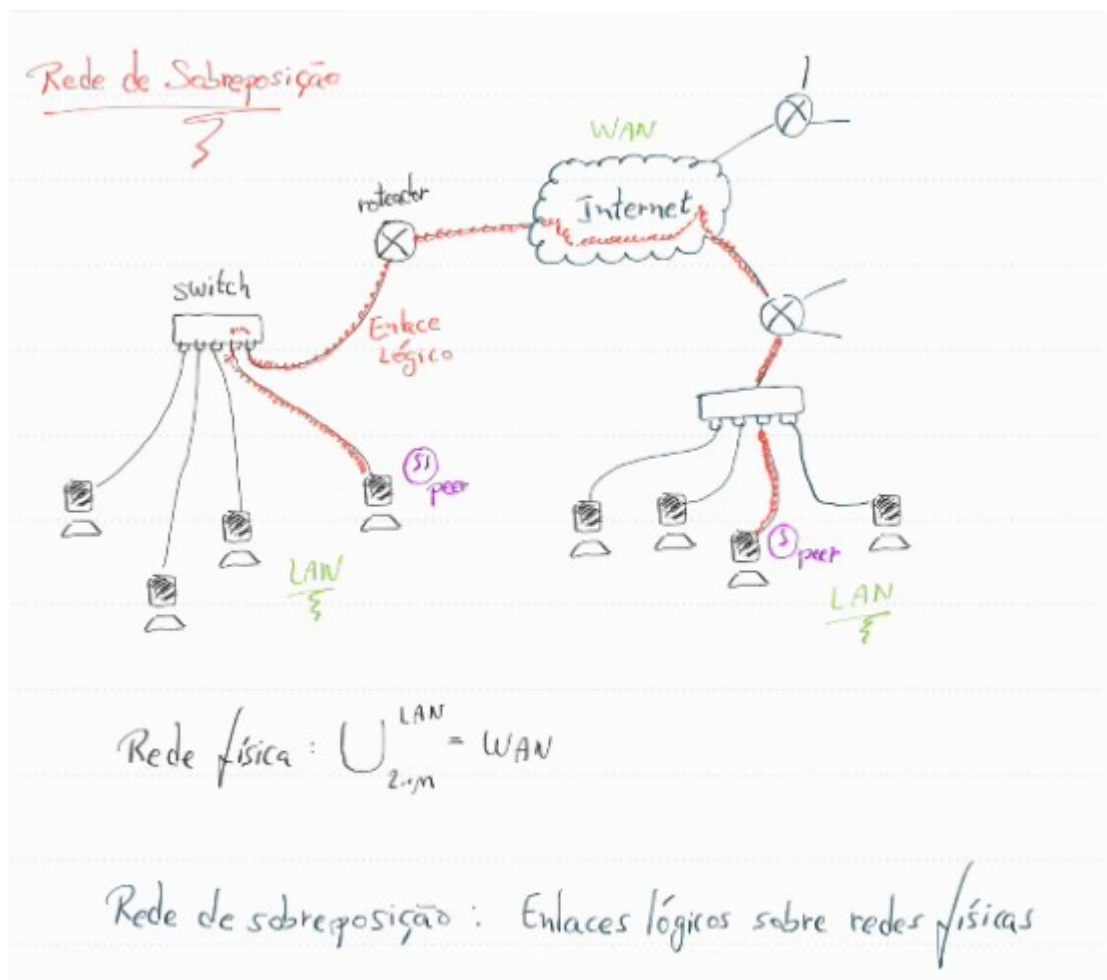 Rede de Sobreposição
WAN
Internet
roteador
switch
Enlace
Lógico
peer
LAN
peer
LAN
Rede física: ⋃ LAN 2..n = WAN
Rede de sobreposição: Enlaces lógicos sobre redes físicas